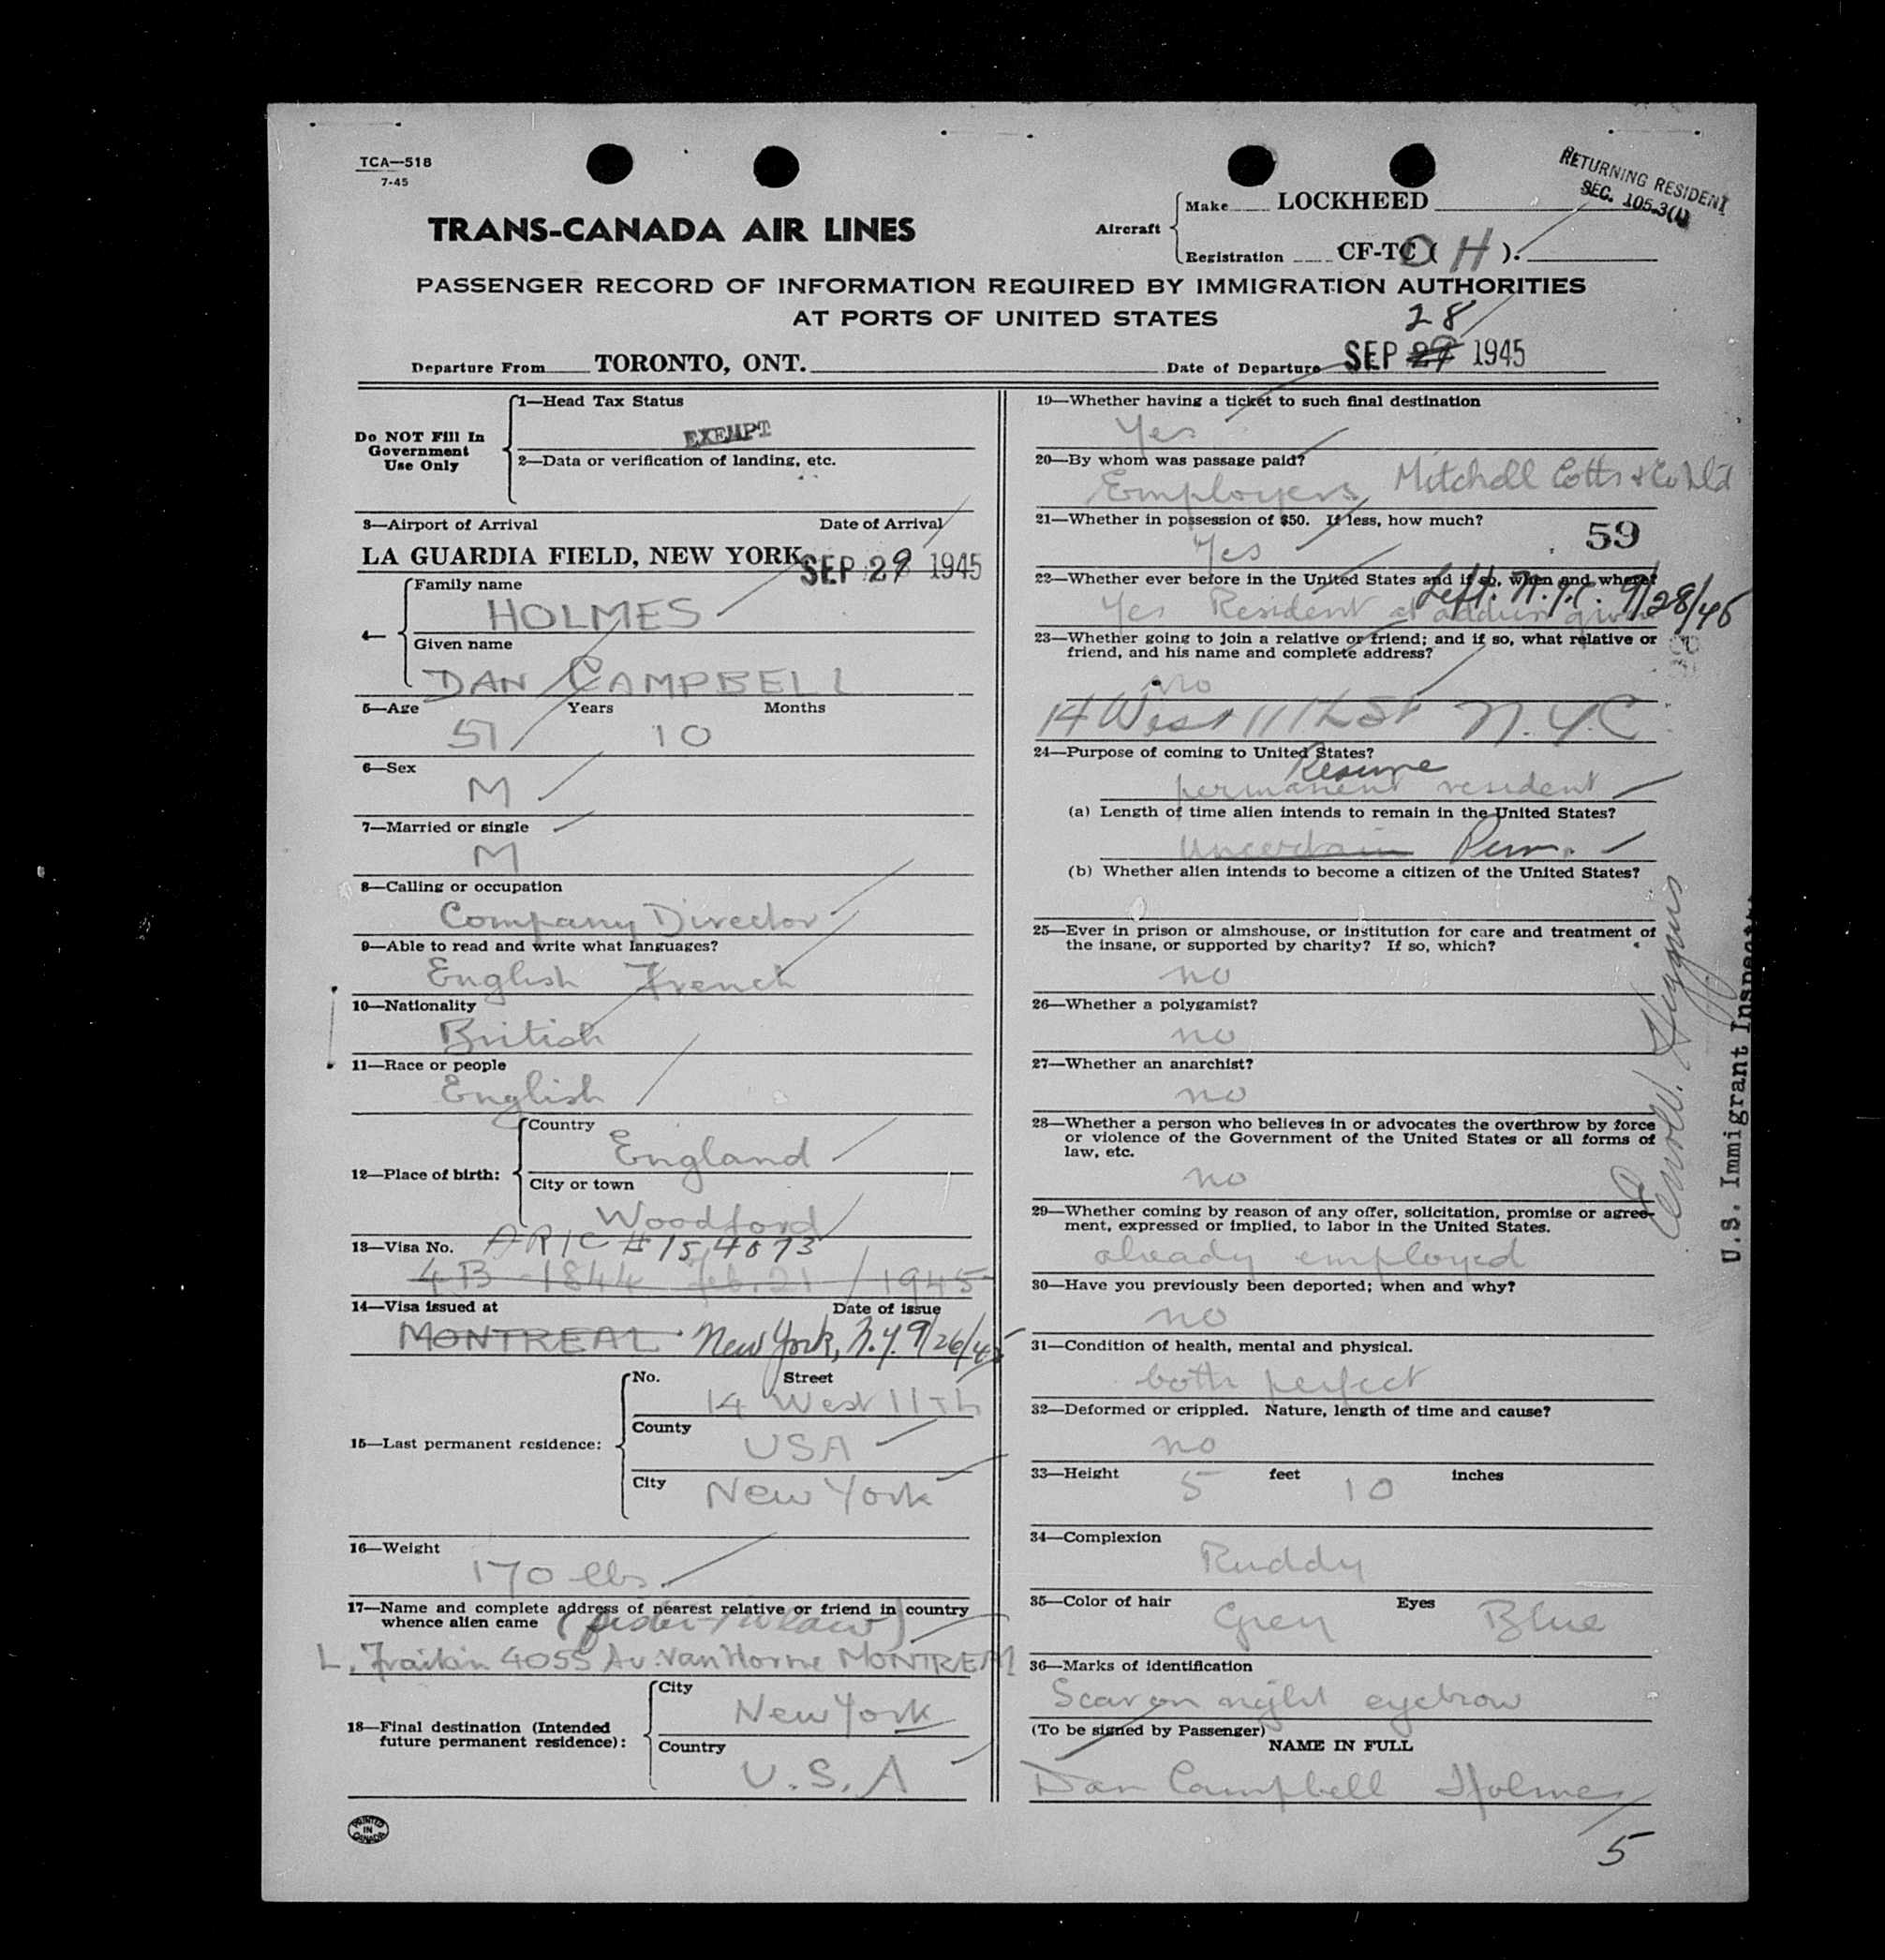 TCA—518
7-45
RETURNING RESIDENT
SEC. 105.3(1)
TRANS-CANADA AIR LINES
Aircraft
Make LOCKHEED
Registration CF-TC ( H ).
PASSENGER RECORD OF INFORMATION REQUIRED BY IMMIGRATION AUTHORITIES
AT PORTS OF UNITED STATES
28
Departure From TORONTO, ONT. Date of Departure SEP 1945
Do NOT Fill In
Government
Use Only
1—Head Tax Status
EXEMPT
2—Data or verification of landing, etc.
3—Airport of Arrival Date of Arrival
LA GUARDIA FIELD, NEW YORK SEP 29 1945
4—
Family name
HOLMES
Given name
DAN CAMPBELL
5—Age Years Months
51 10
6—Sex
M
7—Married or single
M
8—Calling or occupation
Company Director
9—Able to read and write what languages?
English French
10—Nationality
British
11—Race or people
English
12—Place of birth:
Country
England
City or town
Woodford
13—Visa No. #154073
4B-1844 Feb. 21 1945
14—Visa issued at Date of issue
MONTREAL New York, N.Y. 9/26/45
15—Last permanent residence:
No. Street
14 West 11th
County
USA
City New York
16—Weight
170 lbs.
17—Name and complete address of nearest relative or friend in country
whence alien came
L. Fraikin 4055 Av. Van Horne MONTREAL
18—Final destination (Intended
future permanent residence):
City
New York
Country
U.S.A
PRINTED
IN
CANADA
19—Whether having a ticket to such final destination
Yes
20—By whom was passage paid?
Employers Mitchell Cotts & Co Ltd
21—Whether in possession of $50. If less, how much?
Yes 59
22—Whether ever before in the United States and if so, when and where?
Left. N.Y.C. 9/28/45
Yes Resident
23—Whether going to join a relative or friend; and if so, what relative or
friend, and his name and complete address?
No
14 West 11th St N.Y.C
24—Purpose of coming to United States?
Resume
permanent resident
(a) Length of time alien intends to remain in the United States?
Uncertain Perm.
(b) Whether alien intends to become a citizen of the United States?
25—Ever in prison or almshouse, or institution for care and treatment of
the insane, or supported by charity? If so, which?
no
26—Whether a polygamist?
no
27—Whether an anarchist?
no
28—Whether a person who believes in or advocates the overthrow by force
or violence of the Government of the United States or all forms of
law, etc.
no
29—Whether coming by reason of any offer, solicitation, promise or agree-
ment, expressed or implied, to labor in the United States.
already employed
30—Have you previously been deported; when and why?
no
31—Condition of health, mental and physical.
both perfect
32—Deformed or crippled. Nature, length of time and cause?
no
33—Height 5 feet 10 inches
34—Complexion
Ruddy
35—Color of hair Eyes
Grey Blue
36—Marks of identification
Scar on right eyebrow
(To be signed by Passenger)
NAME IN FULL
Dan Campbell Holmes
5
U.S. Immigrant